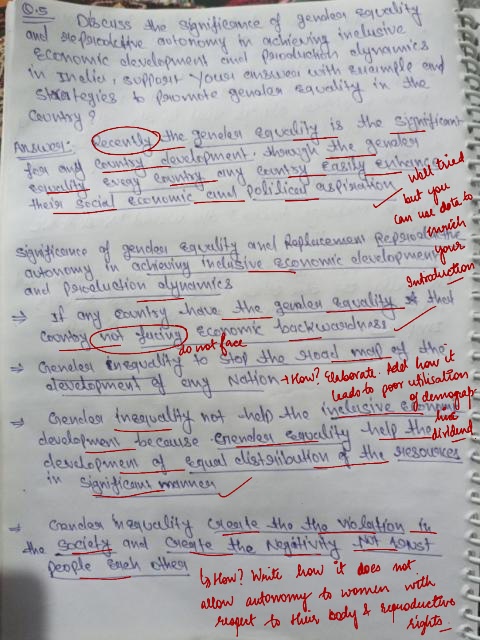 Q.5 Discuss the significance of gender equality
and reproductive autonomy in achieving inclusive
Economic development and Production dynamics
in India, support your answer with example and
strategies to promote gender equality in the
country?
Answer:- Recently the gender equality is the significant
for any country development. through the gender
equality every country any country easily enhance
their social economic and political aspiration
well tried
but you
can use data to
enrich
your
Introduction
significance of gender equality and Replacement Reproductive
autonomy in achieving inclusive economic development
and production dynamics
⇒ If any country have the gender equality that
country not facing economic backwardness
do not face
⇒ Gender inequality to stop the road map of the
development of any Nation
→ How? Elaborate. Add how it
leads to poor utilisation
of demograp-
hic
dividend
⇒ Gender inequality not help the inclusive economy
development because Gender Equality help the
development of equal distribution of the resources
in significant manner
⇒ Gender inequality create the the violation in
the society and create the Negativity Not
people each other
↳ How? Write how it does not
allow autonomy to women with
respect to their body & reproductive
rights.